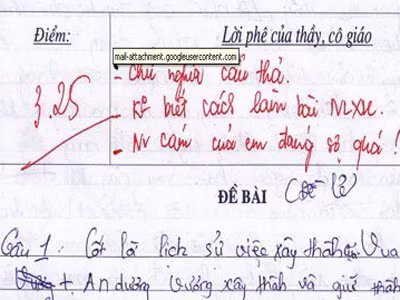 Điểm:
Lời phê của thầy, cô giáo
mail-attachment.googleusercontent.com
3.25
- Chữ nghĩa cẩu thả.
- Ko biết cách làm bài NLXH.
- N cảm của em đáng sợ quá!
ĐỀ BÀI
Câu 1: Cốt lõi lịch sử việc xây thành Vua
+ An dương Vương xây thành và giữ thành